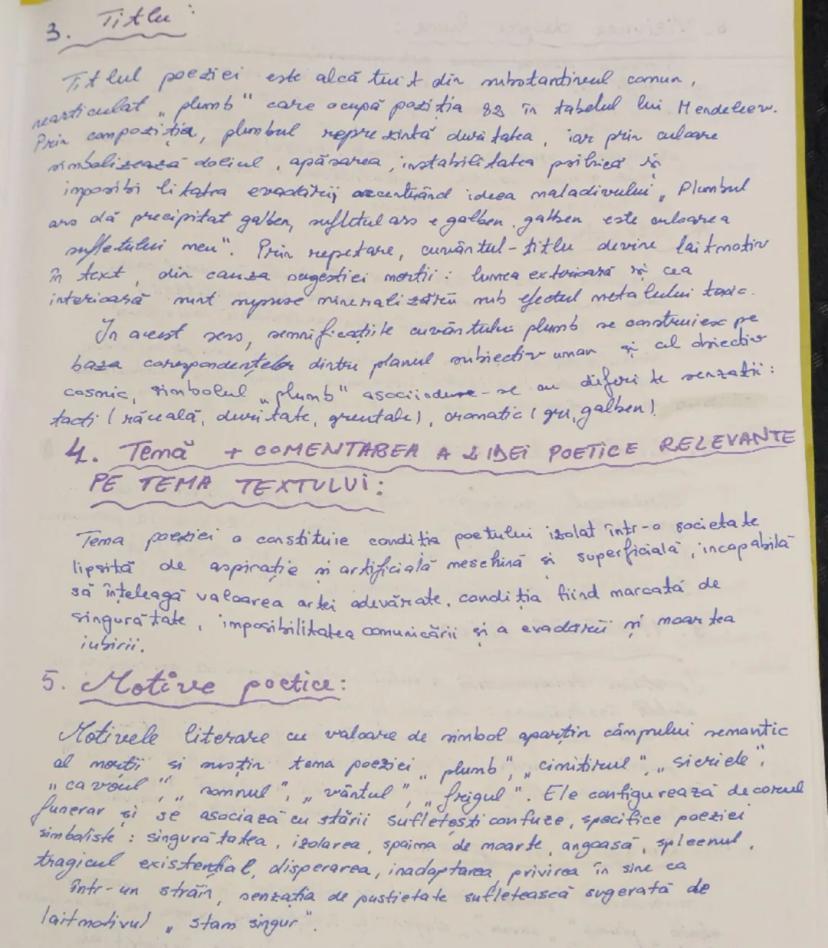 3. Titlu:
Titlul poeziei este alcătuit din substantivul comun,
nearticulat „plumb" care ocupă poziția 82 în tabelul lui Mendeleev.
Prin compoziția, plumbul reprezintă duritatea, iar prin culoare
simbolizează doliul, apăsarea, instabilitatea psihică și
imposibilitatea evadării accentuând ideea maladivului „Plumbul
ars dă precipitat galben, sufletul ars e galben. galben este culoarea
sufletului meu". Prin repetare, cuvântul-titlu devine laitmotiv
în text, din cauza sugestiei morții: lumea exterioară și cea
interioară sunt supuse mineralizării sub efectul metalului toxic.
În acest sens, semnificațiile cuvântului plumb se construiesc pe
baza corespondențelor dintre planul subiectiv uman și cel obiectiv
cosmic, simbolul „plumb" asociindu-se cu diferite senzații:
tacti (răceală, duritate, greutate), cromatic (gri, galben).
4. Temă + COMENTAREA A 2 IDEI POETICE RELEVANTE
PE TEMA TEXTULUI:
Tema poeziei o constituie condiția poetului izolat într-o societate
lipsită de aspirație și artificială meschină și superficială, incapabilă
să înțeleagă valoarea artei adevărate, condiția fiind marcată de
singurătate, imposibilitatea comunicării și a evadării și moartea
iubirii.
5. Motive poetice:
Motivele literare cu valoare de simbol aparțin câmpului semantic
al morții și susțin tema poeziei „plumb", „cimitirul", „sicriele",
„cavoul", „somnul", „vântul", „frigul". Ele configurează decorul
funerar și se asociază cu stării sufletești confuze, specifice poeziei
simboliste: singurătatea, izolarea, spaima de moarte, angoasă, spleenul,
tragicul existențial, disperarea, inadaptarea, privirea în sine ca
într-un străin, senzația de pustietate sufletească sugerată de
laitmotivul „stam singur".